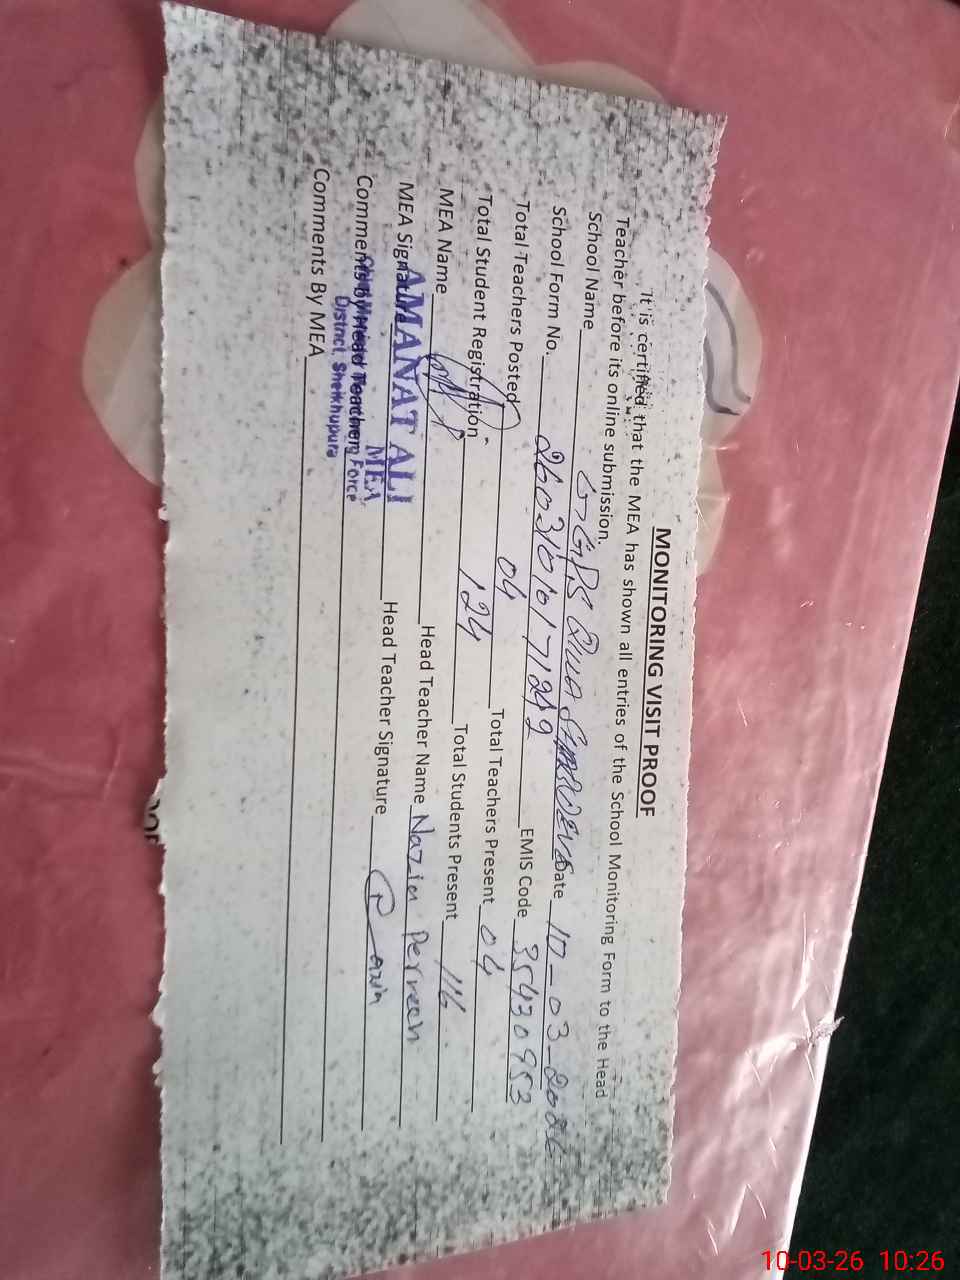 MONITORING VISIT PROOF
It is certified that the MEA has shown all entries of the School Monitoring Form to the Head
Teacher before its online submission.
School Name GGPS QILA Date 10-03-2026
School Form No. 26031010171249 EMIS Code 35430953
Total Teachers Posted 04 Total Teachers Present 04
Total Student Registration 124 Total Students Present 116
MEA Name Head Teacher Name Nazia Perveen
MEA Signature Head Teacher Signature
AMANAT ALI
MEA
Comments By Head Teacher
Force
District, Sheikhupura
Comments By MEA
10-03-26 10:26